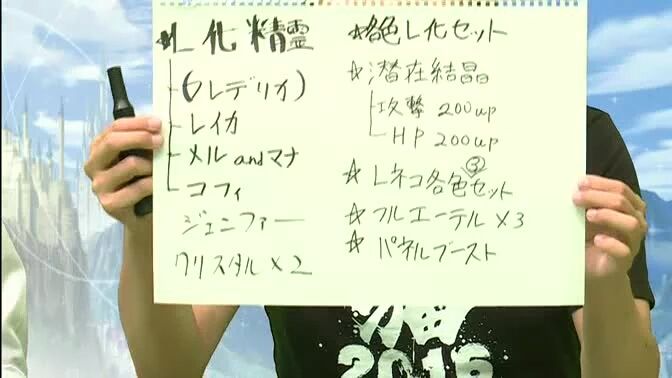 ★L化精霊
(フレデリカ)
レイカ
メルandマナ
コフィ
ジェニファー
クリスタル×2
☆各色L化セット
☆潜在結晶
攻撃 200up
HP 200up
☆Lネコ各色③セット
☆フルエーテル×3
☆パネルブースト
2016